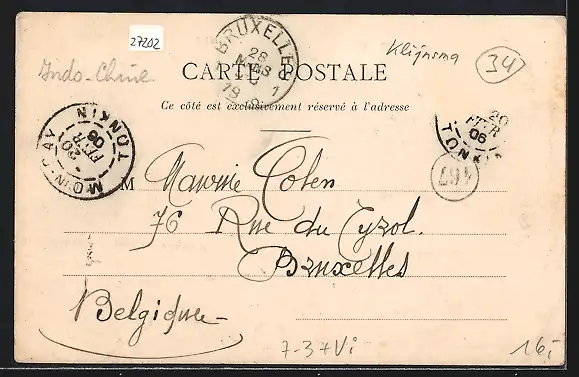 27202
BRUXELLES
28
MARS
1
19
Klijnsma
34
Indo-Chine
CARTE POSTALE
Ce côté est exclusivement réservé à l'adresse
MON-CAY TONKIN
20
FEVR
06
20
FEVR
06
TONKIN
467
M Maurice Coten
76 Rue du Tyrol.
Bruxelles
Belgique
7-3 + Vi
16,-